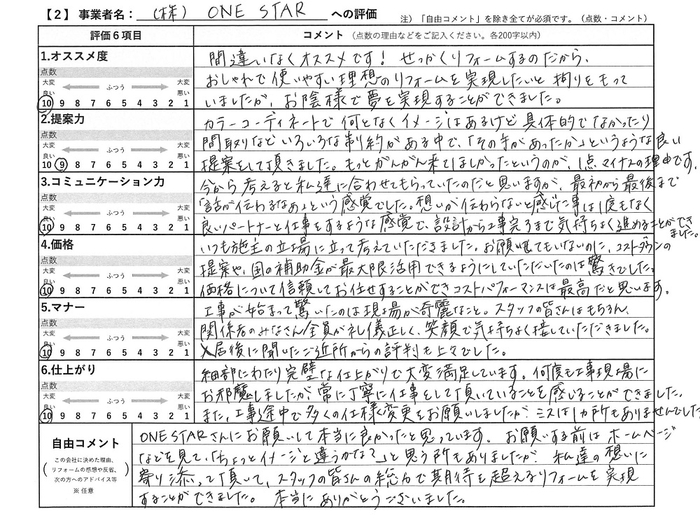 【2】 事業者名： (株) ONE STAR への評価 注) 「自由コメント」を除き全てが必須です。(点数・コメント)
評価6項目 コメント (点数の理由などをご記入ください。各200字以内)
1.オススメ度
点数
大変良い ふつう 大変悪い
10 9 8 7 6 5 4 3 2 1
間違いなくオススメです! せっかくリフォームするのだから、
おしゃれで使いやすい理想のリフォームを実現したいと拘りをもって
いましたが、お陰様で夢を実現することができました。
2.提案力
点数
大変良い ふつう 大変悪い
10 9 8 7 6 5 4 3 2 1
カラーコーディネートで何となくイメージはあるけど具体的でなかったり
間取りなどいろいろな制約がある中で、「その手があったか」というような良い
提案をして頂きました。もっとがんがん来てほしかったというのが、1点マイナスの理由です。
3.コミュニケーション力
点数
大変良い ふつう 大変悪い
10 9 8 7 6 5 4 3 2 1
今から考えると私達に合わせてもらっていたのだと思いますが、最初から最後まで
「話が伝わるなあ」という感覚でした。想いが伝わらないと感じた事は1度もなく
良いパートナーと仕事をするような感覚で、設計から工事完了まで気持ちよく進めることができました。
4.価格
点数
大変良い ふつう 大変悪い
10 9 8 7 6 5 4 3 2 1
いつも施主の立場に立って考えていただきました。お願いしてもいないのに、コストダウンの
提案や、国の補助金が最大限活用できるようにしていただいたのは驚きでした。
価格について信頼してお任せすることができコストパフォーマンスは最高だと思います。
5.マナー
点数
大変良い ふつう 大変悪い
10 9 8 7 6 5 4 3 2 1
工事が始まって驚いたのは現場が奇麗なこと。スタッフの皆さんはもちろん、
関係者のみなさん全員が礼儀正しく、笑顔で気持ちよく接していただきました。
入居後に聞いたご近所からの評判も上々でした。
6.仕上がり
点数
大変良い ふつう 大変悪い
10 9 8 7 6 5 4 3 2 1
細部にわたり完璧な仕上がりで大変満足しています。何度も工事現場に
お邪魔しましたが常に丁寧に仕事をして頂いていることを感じることができました。
また、工事途中で多くの仕様変更をお願いしましたが、ミスは1カ所もありませんでした
自由コメント
(この会社に決めた理由、リフォームの感想や反省、次の方へのアドバイス等)
※ 任意
ONE STARさんにお願いして本当に良かったと思っています。お願いする前はホームページ
などを見て、「ちょっとイメージと違うかな?」と思う所もありましたが、私達の想いに
寄り添って頂いて、スタッフの皆さんの総力で期待を超えるリフォームを実現
することができました。本当にありがとうございました。